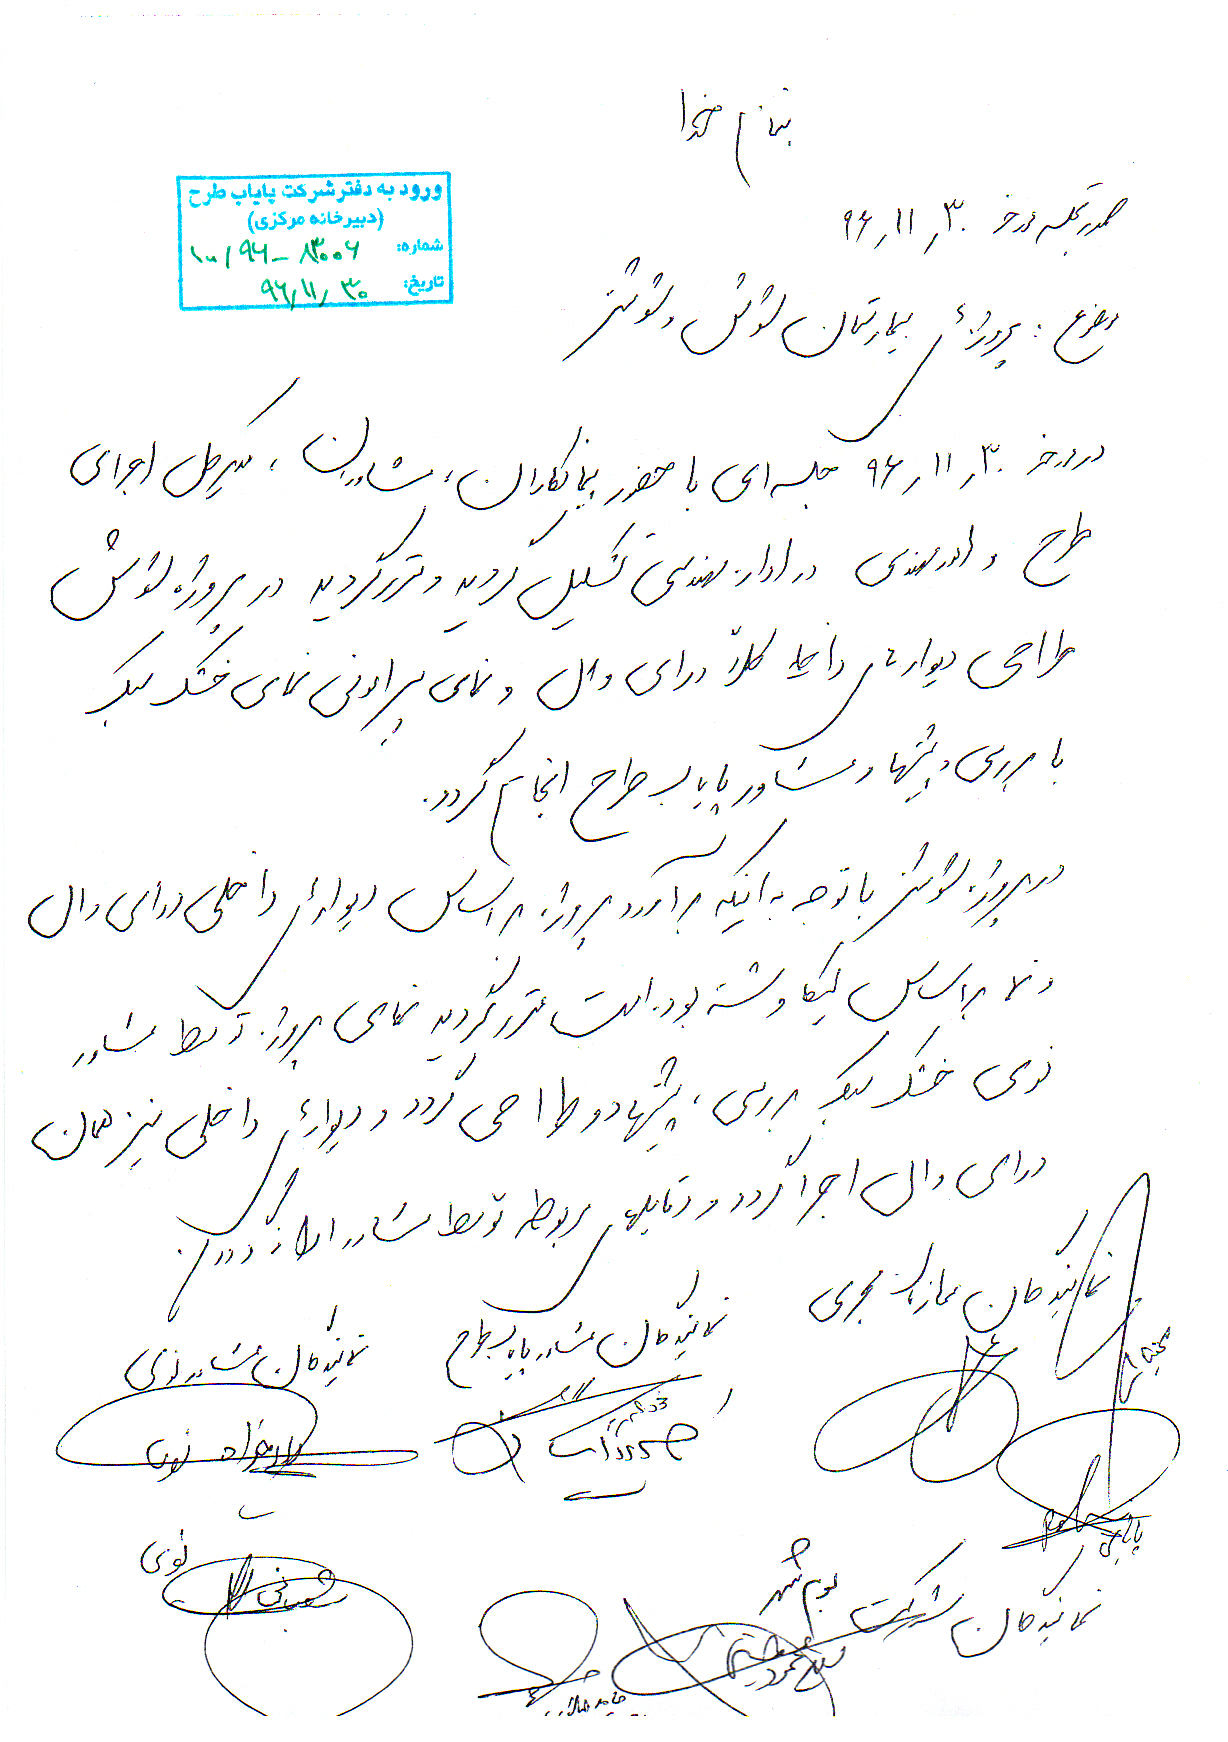 بنام خدا
ورود به دفتر شرکت پایاب طرح
(دبیرخانه مرکزی)
شماره: ۱۰/۹۶-۸۳۰۰۶
تاریخ: ۹۶/۱۱/۳۰
صورتجلسه مورخ ۹۶/۱۱/۳۰
موضوع: پروژه‌های بیمارستان شوش و شوشتر
در مورخ ۹۶/۱۱/۳۰ جلسه‌ای با حضور پیمانکاران، مشاوران، مدیر کل اجرای
طرح و امور مهندسی در اداره مهندسی تشکیل گردید و مقرر گردید در پروژه شوش
طراحی دیوارهای داخلی کلاً درای وال و نمای پیرامونی نمای خشک سبک
با بررسی و پیشنهاد مشاور پایاب طرح انجام گردد.
در پروژه شوشتر با توجه به اینکه برآورد پروژه بر اساس دیوارهای داخلی درای وال
و نما بر اساس لیکا و شسته بوده است مقرر گردید نمای پروژه توسط مشاور
نوی خشک سبک بررسی، پیشنهاد و طراحی گردد و دیوارهای داخلی نیز همان
درای وال اجرا گردد و دیتیلهای مربوطه توسط مشاور ارائه گردد.
نمایندگان سازمان مجری
نمایندگان مشاور پایاب طرح
نمایندگان مشاور نوی
نوی
نمایندگان شرکت بوم شهر